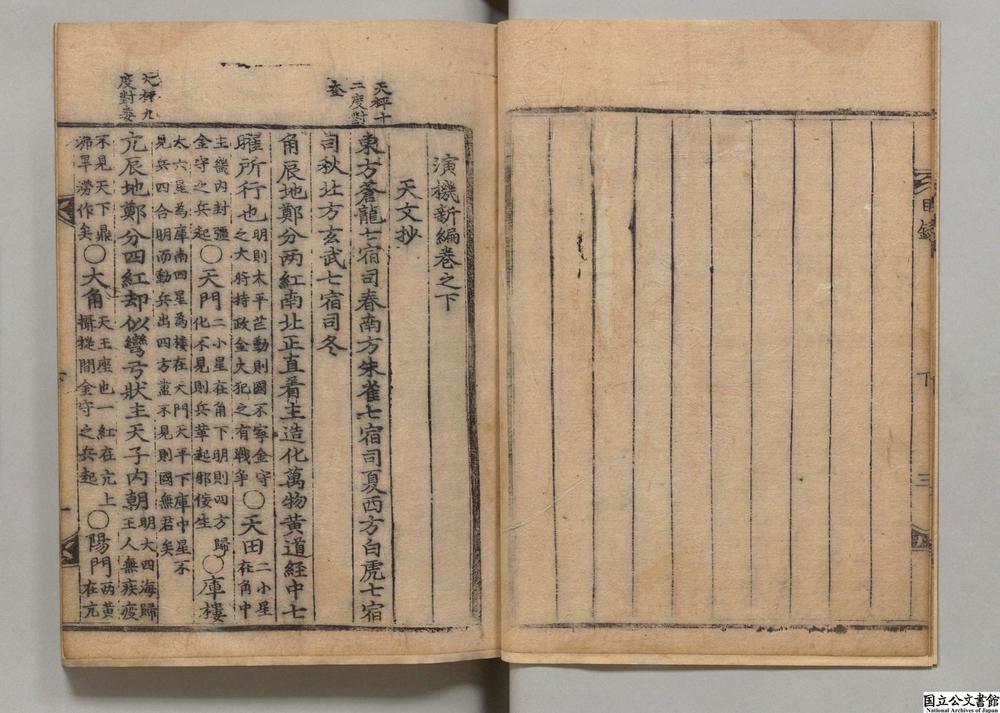 目録
下
三
天秤十
二度對
奎
演機新編卷之下
天文抄
東方蒼龍七宿司春南方朱雀七宿司夏西方白虎七宿
司秋北方玄武七宿司冬
角辰地鄭分两紅南北正直着主造化萬物黄道經中七
曜所行也明則太平芒動則國不寧金守之大將持政金火犯之有戰爭○天田二小星在角中
主畿內封疆金守之兵起○天門二小星在角下明則四方歸化不見則兵革起邪佞生○庫樓
太六星為庫南四星為樓在天門天平下庫中星不
見兵四合明而動兵出四方盡不見則國無君矣
天秤九
度對婁
亢辰地鄭分四紅却似彎弓狀主天子內朝明大四海歸王人無疾疫
不見天下鼎沸旱澇作矣○大角天王座也一紅在亢上攝提間金守之兵起○陽門两黄在亢
国立公文書館
National Archives of Japan